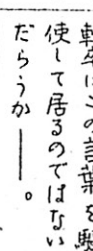 軽率にこの言葉を駆
使して居るのではない
だらうか――。